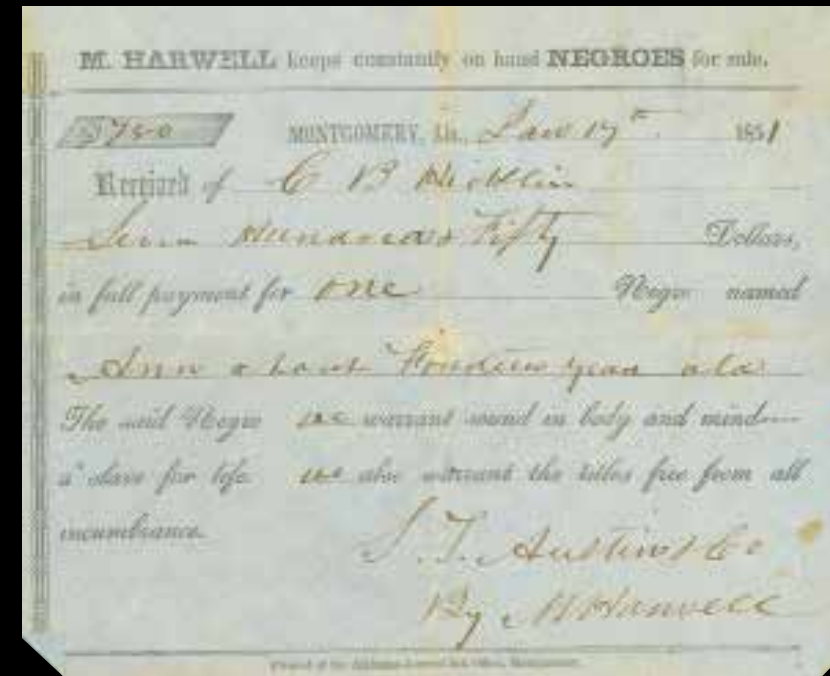 M. HARWELL keeps constantly on hand NEGROES for sale.
$750 MONTGOMERY, Ala., Jan 17th 1851
Received of C B Hicklin
Seven Hundred & Fifty Dollars,
in full payment for one Negro named
Ann about Fourteen years old
The said Negro we warrant sound in body and mind
a slave for life we also warrant the titles free from all
incumbrance.
S. T. Austin & Co
By M Harwell
Printed at the Alabama Journal Job Office, Montgomery.